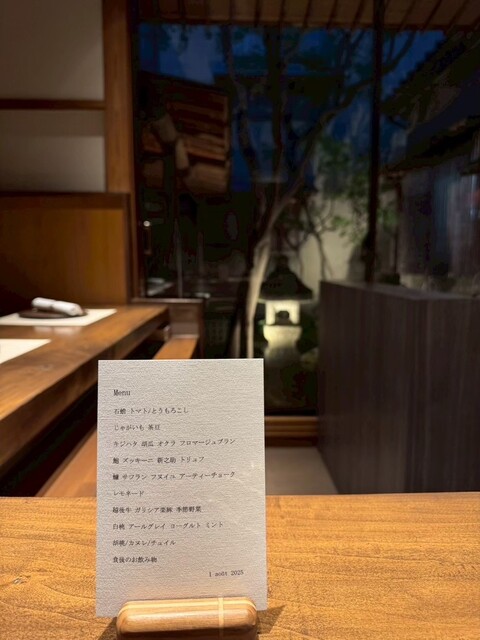 Menu
石鯛 トマト/とうもろこし
じゃがいも 茶豆
キジハタ 胡瓜 オクラ フロマージュブラン
鮑 ズッキーニ 新之助 トリュフ
鱧 サフラン フヌイユ アーティーチョーク
レモネード
越後牛 ガリシア栗豚 季節野菜
白桃 アールグレイ ヨーグルト ミント
胡桃/カヌレ/チュイル
食後のお飲み物
1 août 2025